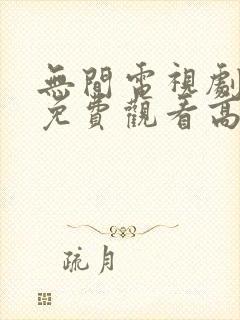 無間電視劇
免費觀看高
疏月